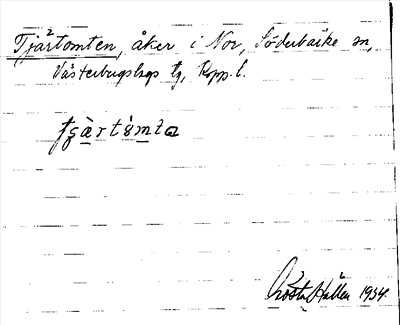 Tjärtomten, åker i Nor, Söderbärke sn,
Västerbergslags tg, Kopp. l.
tjä̀rtòmta
Gösta Hallén 1934.